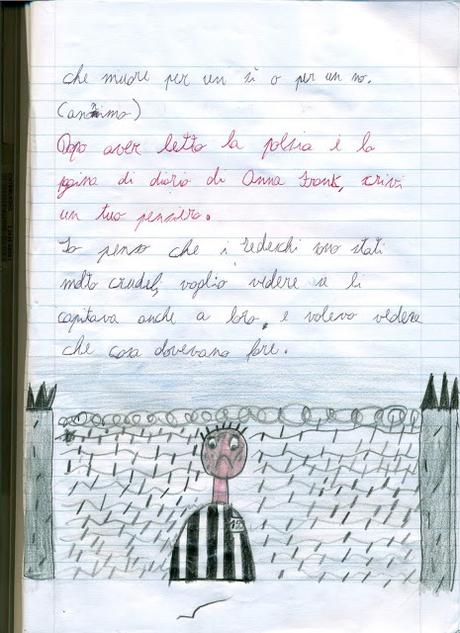 che muore per un sì o per un no.
(anonimo)
Dopo aver letto la poesia e la
pagina di diario di Anna Frank, scrivi
un tuo pensiero.
Io penso che i tedeschi sono stati
molto crudeli, voglio vedere se li
capitava anche a loro, e volevo vedere
che cosa dovevano fare.